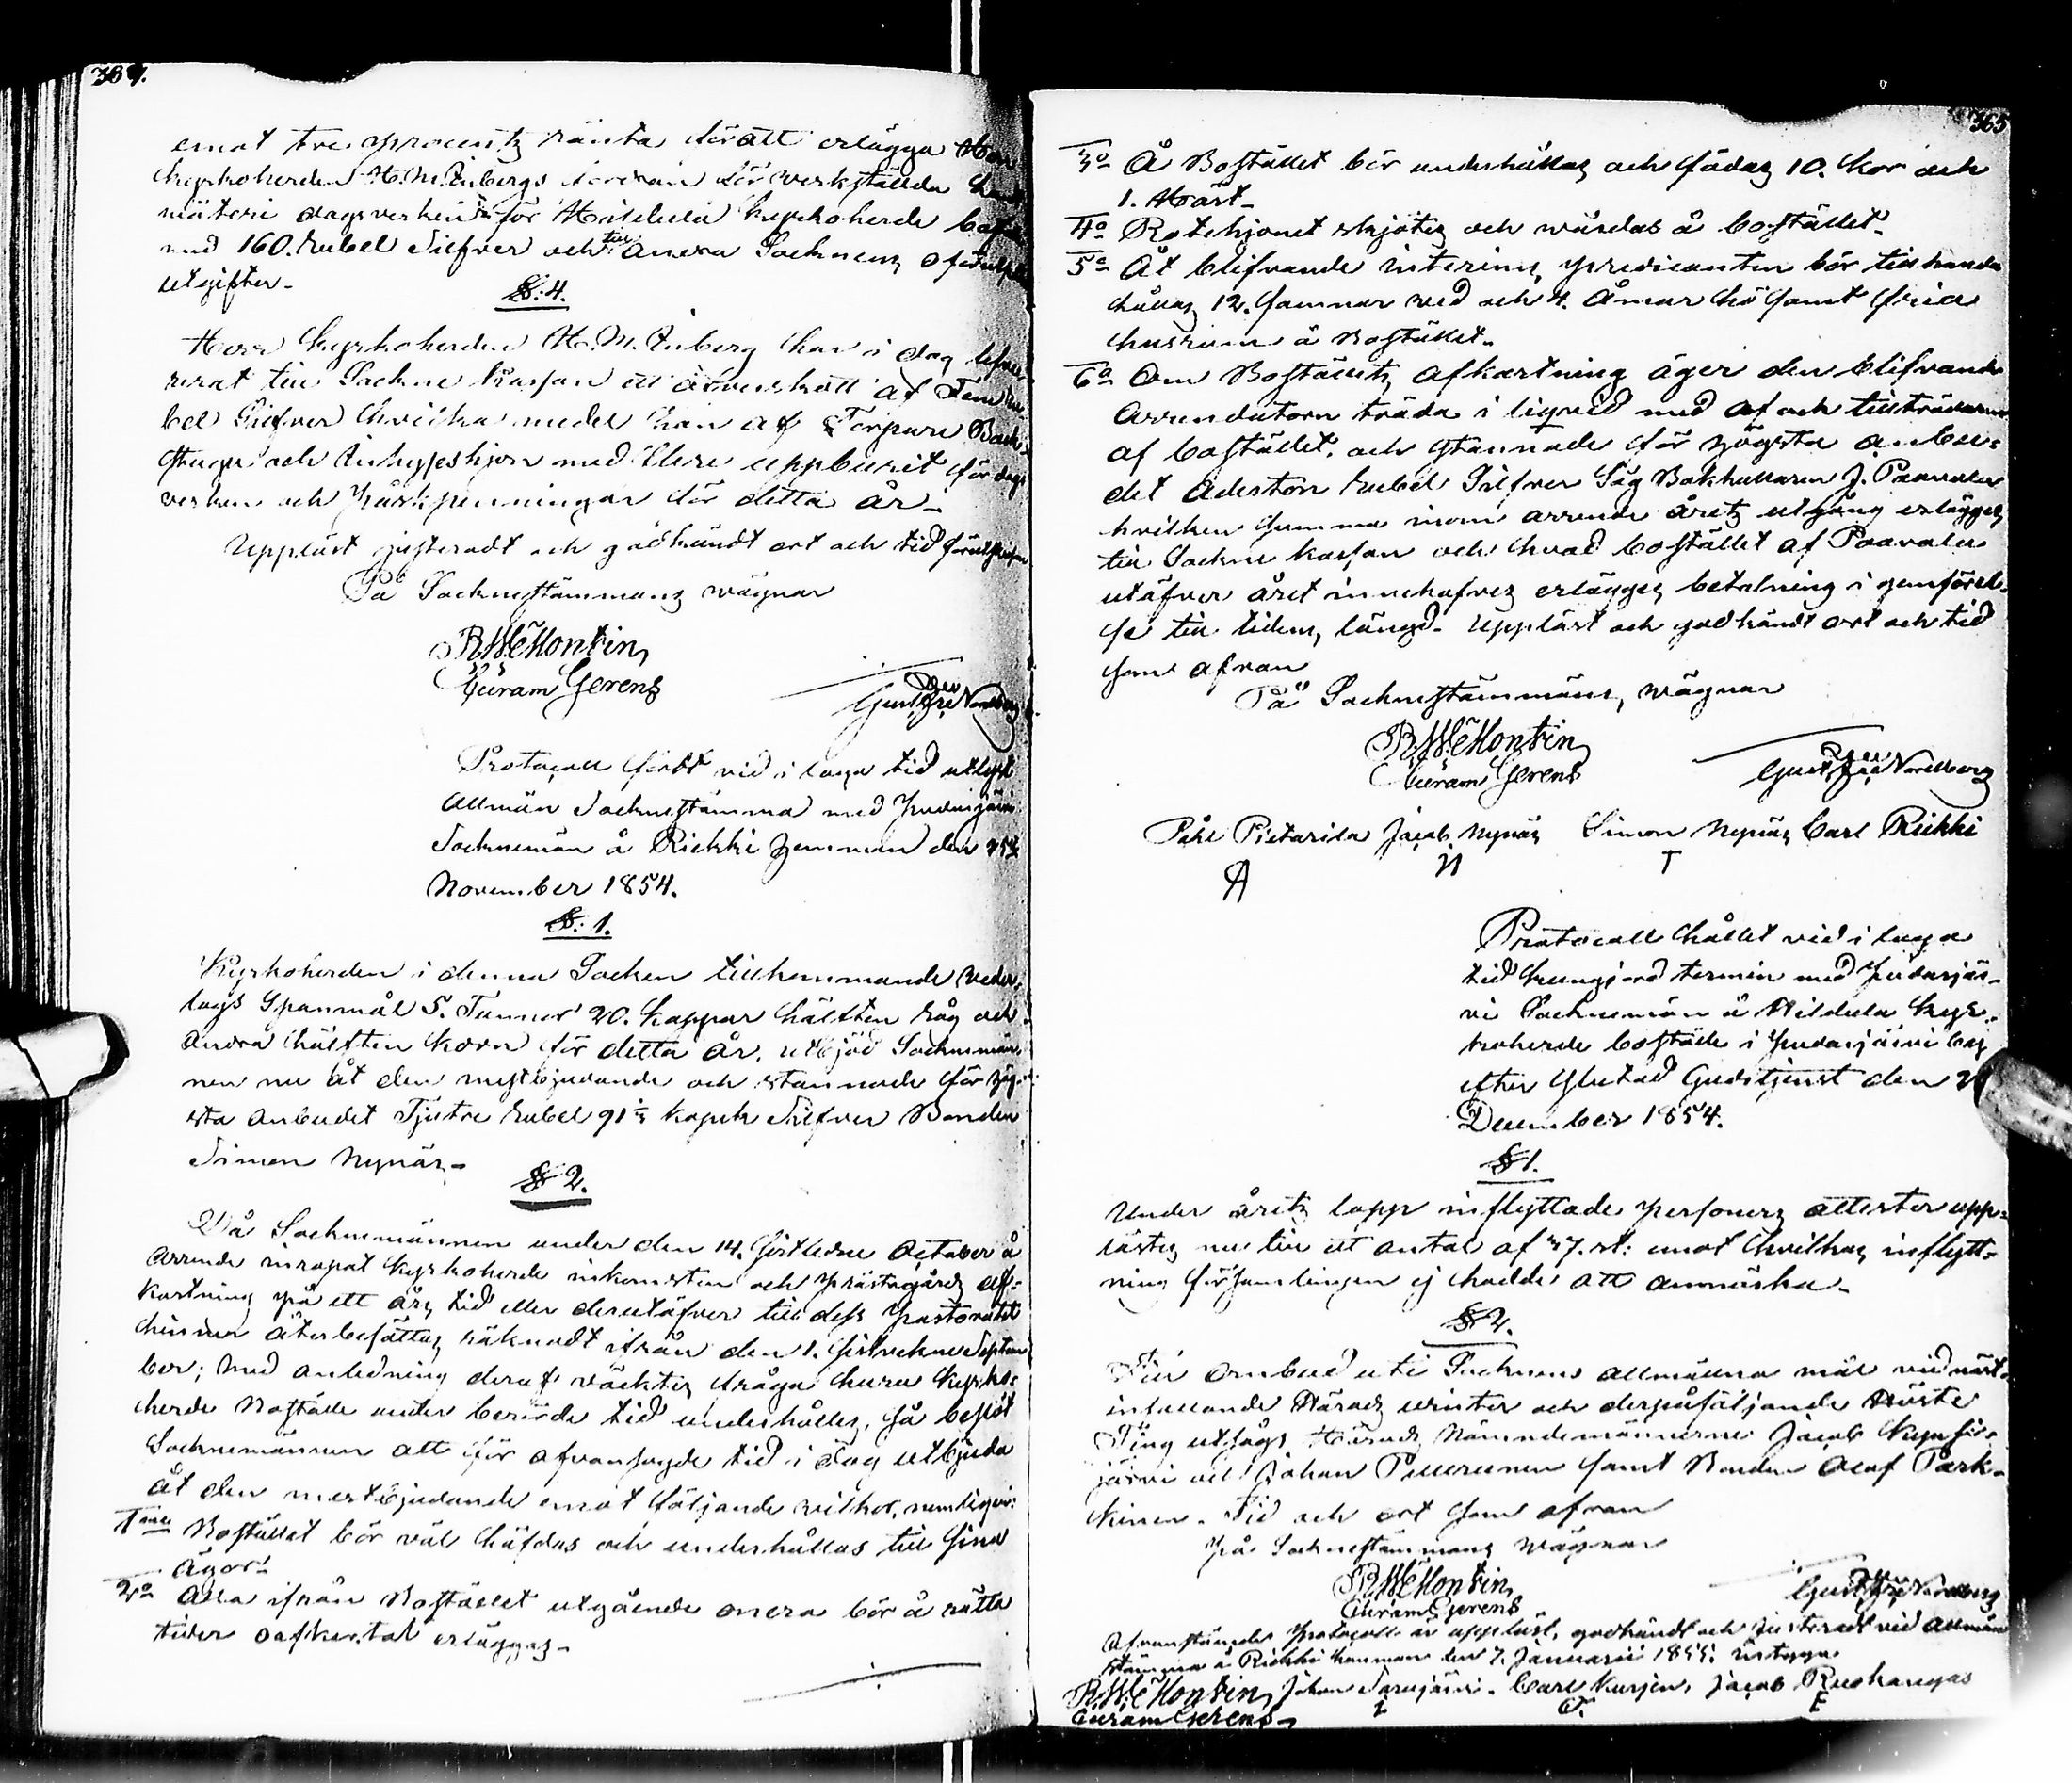 364.
emot tre procents ränta för att erlägga Herr
Kyrkoherden H. M. Inbergs förmän för verkställda Land
mäteri dagsverken för Hildula Kyrkoherde bost
med 160. Rubel Silfver och till andra Socknens oförutsedda
utgifter.
§: 4.
Herr Kyrkoherden H. M. Inberg har i dag lefve-
rerat till Sockne Kassan ett öfverskott af Fem Ru-
bel Silfver hvilka medel han af Torpare Back-
stugu och Inhyseshjon med flere uppburit för dags
verken och Påskpenningar för detta år.
Uppläst justeradt och godkändt ort och tid förutskrifne
På Sockenstämmans wägnar
R. W. Montin,
Curam Gerens
Gust. Fre. Nordberg
Protocoll fördt vid i laga tid utlyst
Allmän Sockenstämma med Pudasjärvi
Socknemän å Riekki Hemman den 25
November 1854.
§: 1.
Kyrkoherden i denna Socken tillkommande veder-
lags Spanmål 5. Tunnor 20. Kappar hälften Råg och
andra hälften Korn för detta år, utbjöd Socknemän-
nen nu åt den mestbjudande och stannade för hög-
sta anbudet Tjutre Rubel 91½ Kopek Silfver Bonden
Simon Nynäs.
§ 2.
Då Socknemännen under den 14. sistledne October å
Arrende inropat Kyrkoherde inkomsten och Prästagårds af-
kastning på ett års tid eller derutöfver till dess Pastoratet
hinner återbesättas räknadt ifrån den 1. sistvekne Septem
ber; Med anledning deraf väcktes fråga huru Kyrko-
herde Boställe under berörde tid underhålles, så beslöt
Socknemännen att för ofvansagde tid i dag utbjuda
åt den mestbjudande emot följande vilkor, nemligen:
1mo Bostället bör väl häfdas och underhållas till sina
ägor.
2o Alla ifrån Bostället utgående onera bör å rätta
tider oafkortat erläggas.
365
3o Å Bostället bör underhållas och födas 10. Kor och
1. Häst.
4o Rotehjonet skjötes och wårdas å bostället.
5o Åt blifvande interims predicanten bör tillhanda
hållas 12. famnar ved och 4. Åmar hö samt fria
husrum å Bostället.
6o Om Boställets afkastning äger den blifvande
Arrendatorn träda i liqvid med af och tillträdarne
af bostället, och stannade för högsta anbu-
det Aderton Rubel Silfver Såg Bokhållaren J. Paavola
hvilken summa inom arrende årets utgång erlägges
till Sockne Kassan och hvad bostället af Paavola
utöfver året innehafves erlägges betalning i jemförel-
se till tidens längd. Uppläst och godkändt ort och tid
som ofvan
På Sockenstämmans, wägnar
R. W. Montin,
Curam Gerens
Gust. Fre. Nordberg
Påhl Pietarila Jacob Nynäs Simon Nynäs Carl Riekki
Protocoll hållet vid i laga
tid kungjord termin med Pudasjär-
vi Socknemän å Hildula Kyr-
koherde boställe i Pudasjärvi by
efter slutad Gudstjenst den 2
December 1854.
§ 1.
Under årets lopp inflyttade personers attester upp-
lästes nu till ett antal af 47. st: emot hvilkas inflytt-
ning församlingen ej hadde att anmärka.
§ 2.
Till ombud uti Socknens allmänna mål vid näst-
infallande Härads vinter och derpåföljande Höste
Ting utsågs Härads Nämndemännerne Jacob
järvi och Johan samt Bonden Olof Park-
kinen. Tid och ort som ofvan
På Sockenstämmans wägnar
R. W. Montin,
Curam Gerens
Gust. Fre. Nordberg
Ofvanstående Protocoll är uppläst, godkändt och justeradt vid Allmän
stämma å Riekki hemman den 7. Januarii 1855. intyga
R. W. Montin, Johan Sarajärvi. Carl Kurjen, Jacob Ruohangas
Curam Gerens